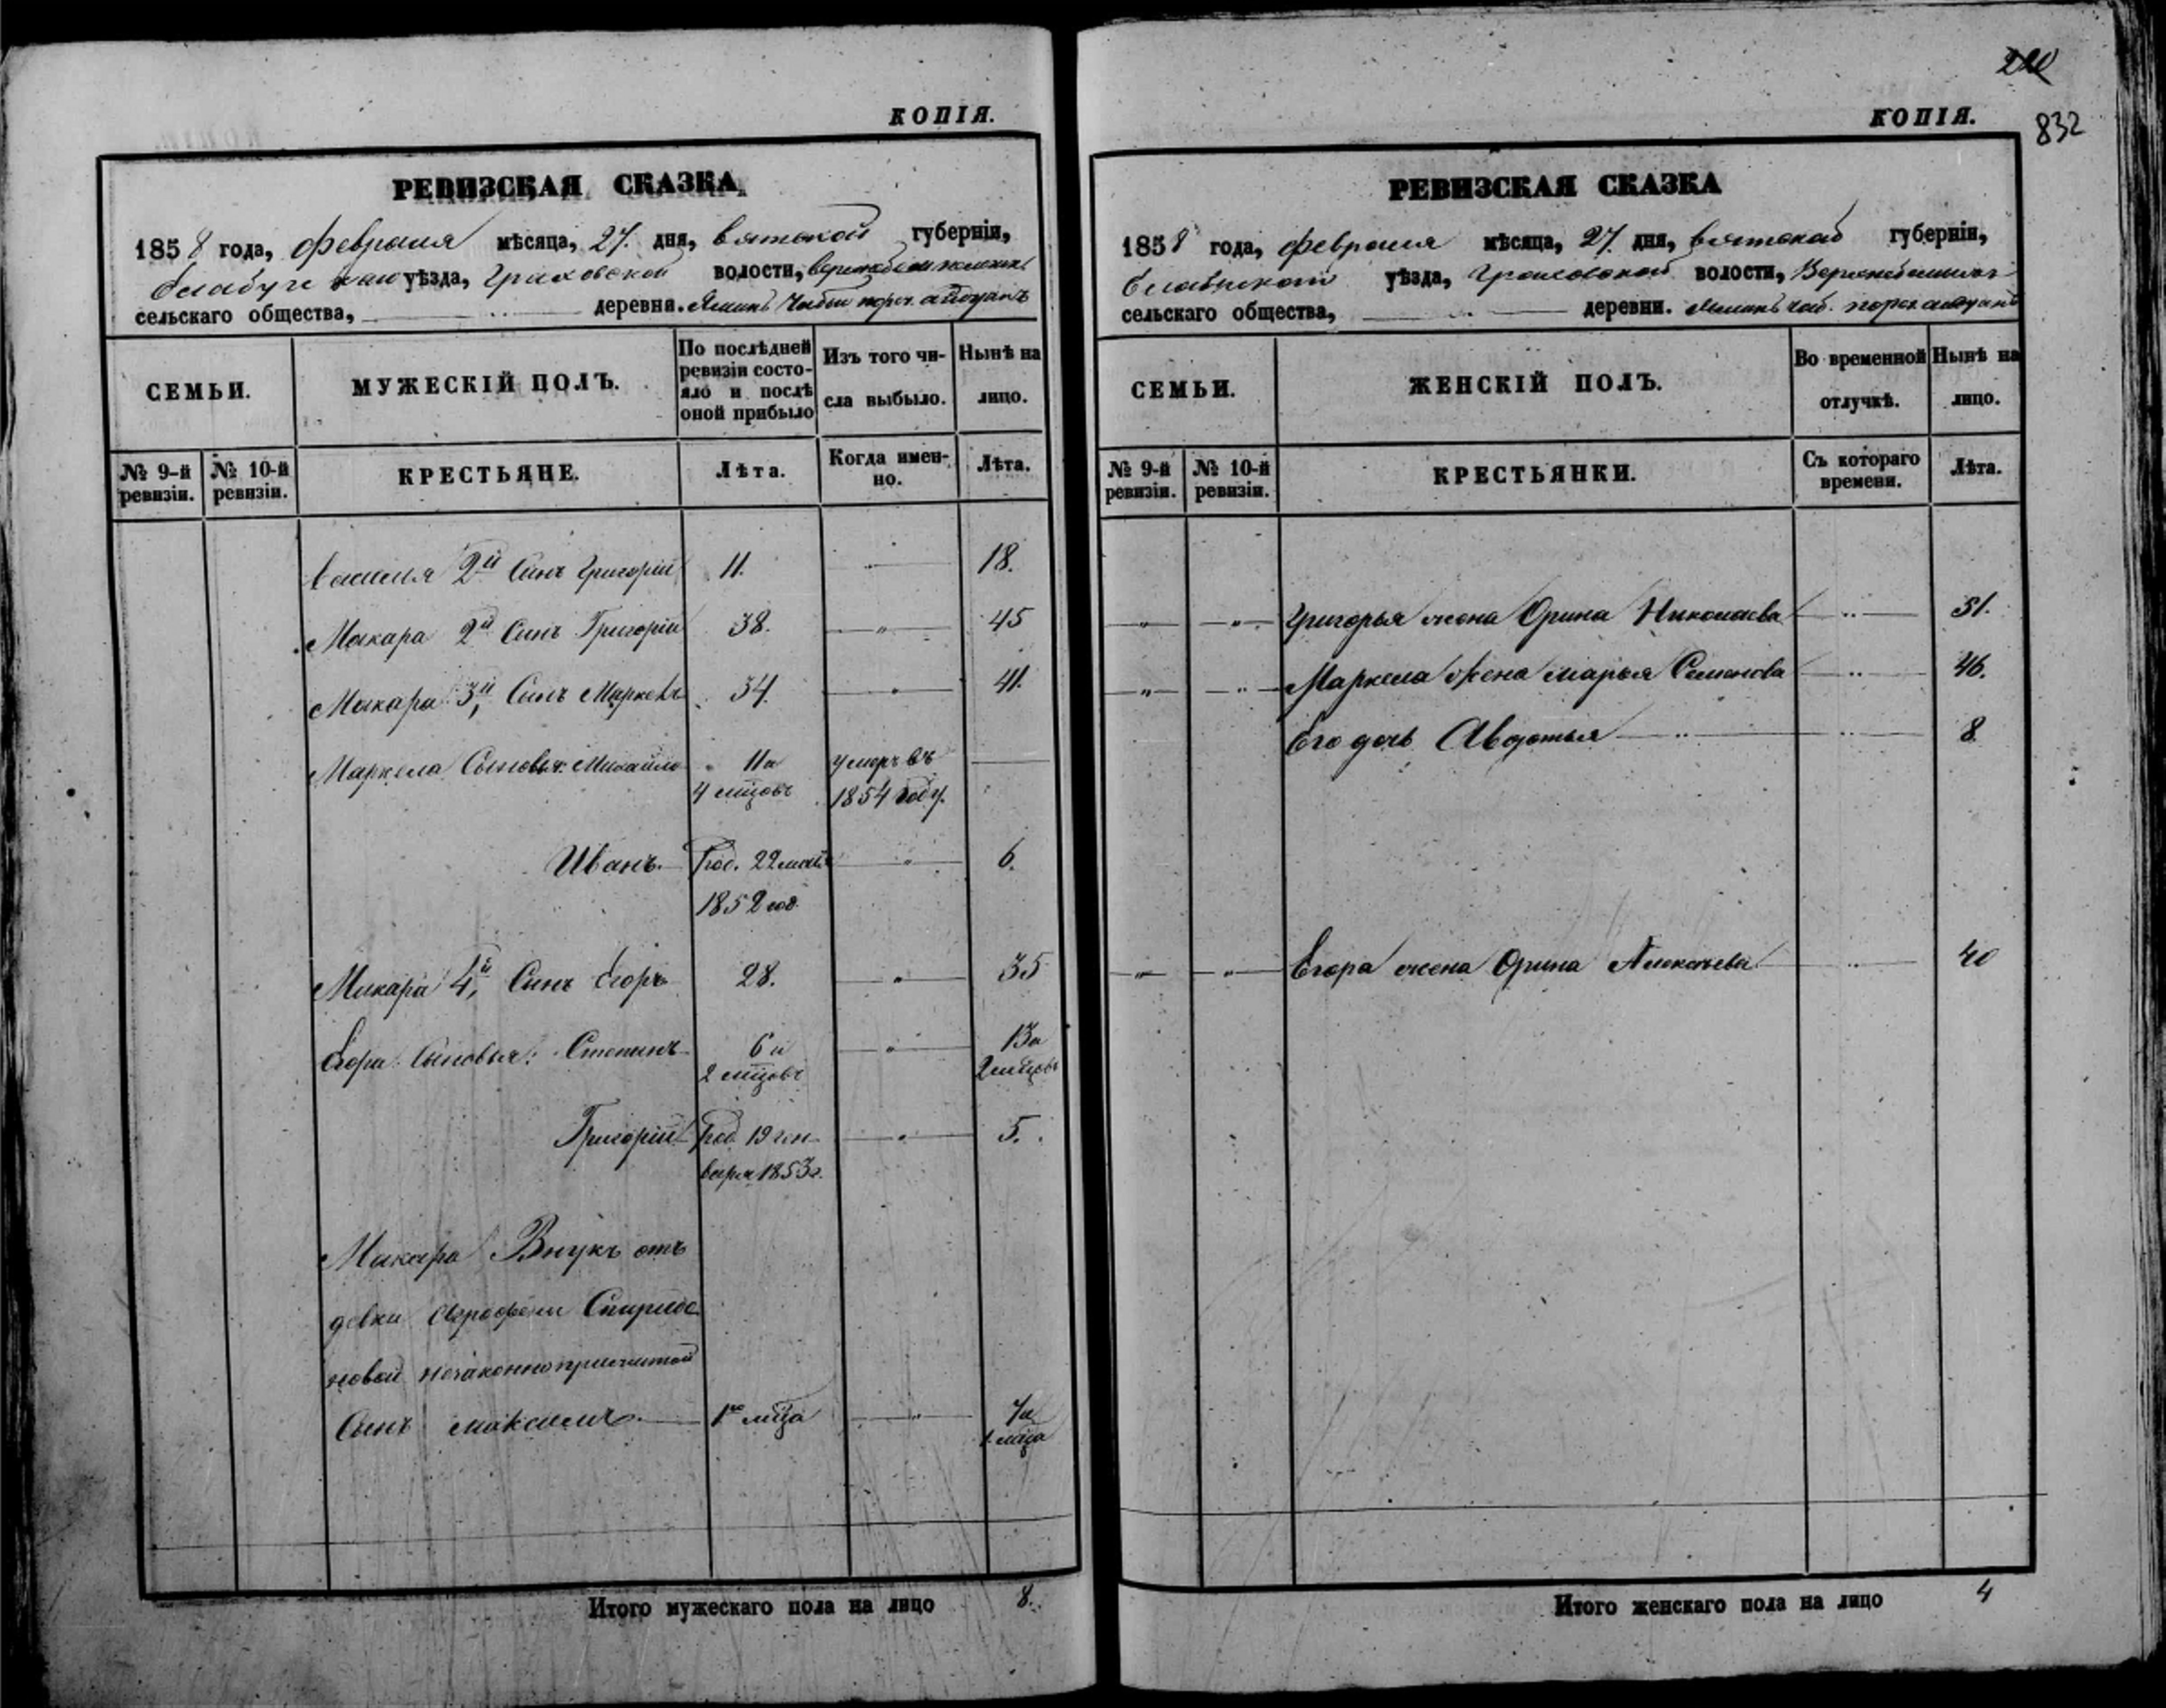 КОПІЯ.
РЕВИЗСКАЯ СКАЗКА
1858 года, февраля мѣсяца, 27. дня, Вятской губерніи,
Елабужскаго уѣзда, Граховской волости,
сельскаго общества, деревни.
СЕМЬИ.
МУЖЕСКІЙ ПОЛЪ.
По послѣдней ревизіи состояло и послѣ оной прибыло
Изъ того числа выбыло.
Нынѣ на лицо.
№ 9-й ревизіи.
№ 10-й ревизіи.
КРЕСТЬЯНЕ.
Лѣта.
Когда именно.
Лѣта.
Василия 2й Сынъ Григорій 11. 18.
Макара 2й Сынъ Григорій 38. 45
Макара 3й Сынъ Маркелъ 34. 41.
Маркела Сыновья: Михайло 11 и умеръ въ
4 мцовъ 1854 году.
Иванъ. Род. 22 мая 6.
1852 год.
Макара 4й Сынъ Егоръ 28. 35
Егора Сыновья: Степанъ 6 и 13 и
2 мцовъ 2 мцовъ
Григорій Род. 19 ген- 5.
варя 1853 г.
Макара Внукъ отъ
девки Агрофени Спиридо
новой незаконно прижитой
Сынъ Максимъ 1 мца 7 и
1 мца
Итого мужескаго пола на лицо 8.
220
832
КОПІЯ.
РЕВИЗСКАЯ СКАЗКА
1858 года, февраля мѣсяца, 27. дня, Вятской губерніи,
уѣзда, Граховской волости,
сельскаго общества, деревни.
СЕМЬИ.
ЖЕНСКІЙ ПОЛЪ.
Во временной отлучкѣ.
Нынѣ на лицо.
№ 9-й ревизіи.
№ 10-й ревизіи.
КРЕСТЬЯНКИ.
Съ котораго времени.
Лѣта.
Григорья жена Орина Николаева 51.
Маркела жена Марья Семенова 46.
Его дочь Авдотья 8
Егора жена Орина Алексеева 40
Итого женскаго пола на лицо 4